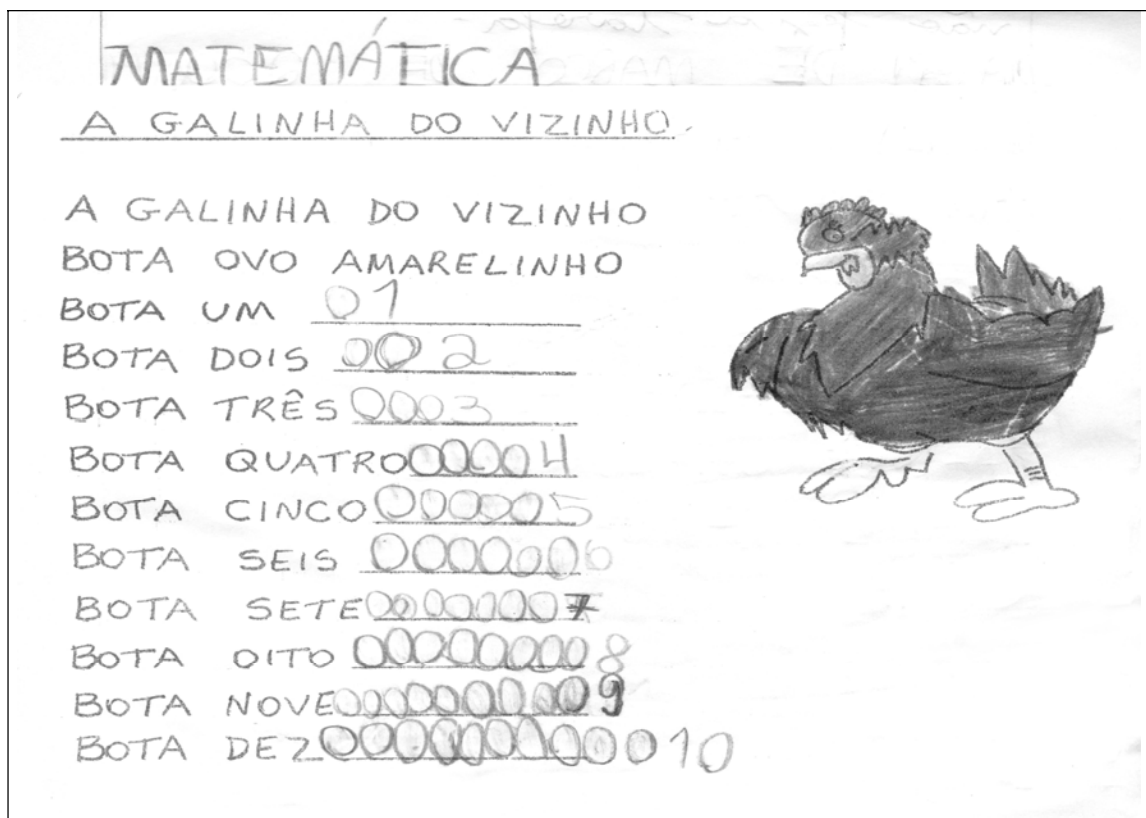 MATEMÁTICA
A GALINHA DO VIZINHO.
A GALINHA DO VIZINHO
BOTA OVO AMARELINHO
BOTA UM 1
BOTA DOIS 2
BOTA TRÊS 3
BOTA QUATRO 4
BOTA CINCO 5
BOTA SEIS 6
BOTA SETE 7
BOTA OITO 8
BOTA NOVE 9
BOTA DEZ 10